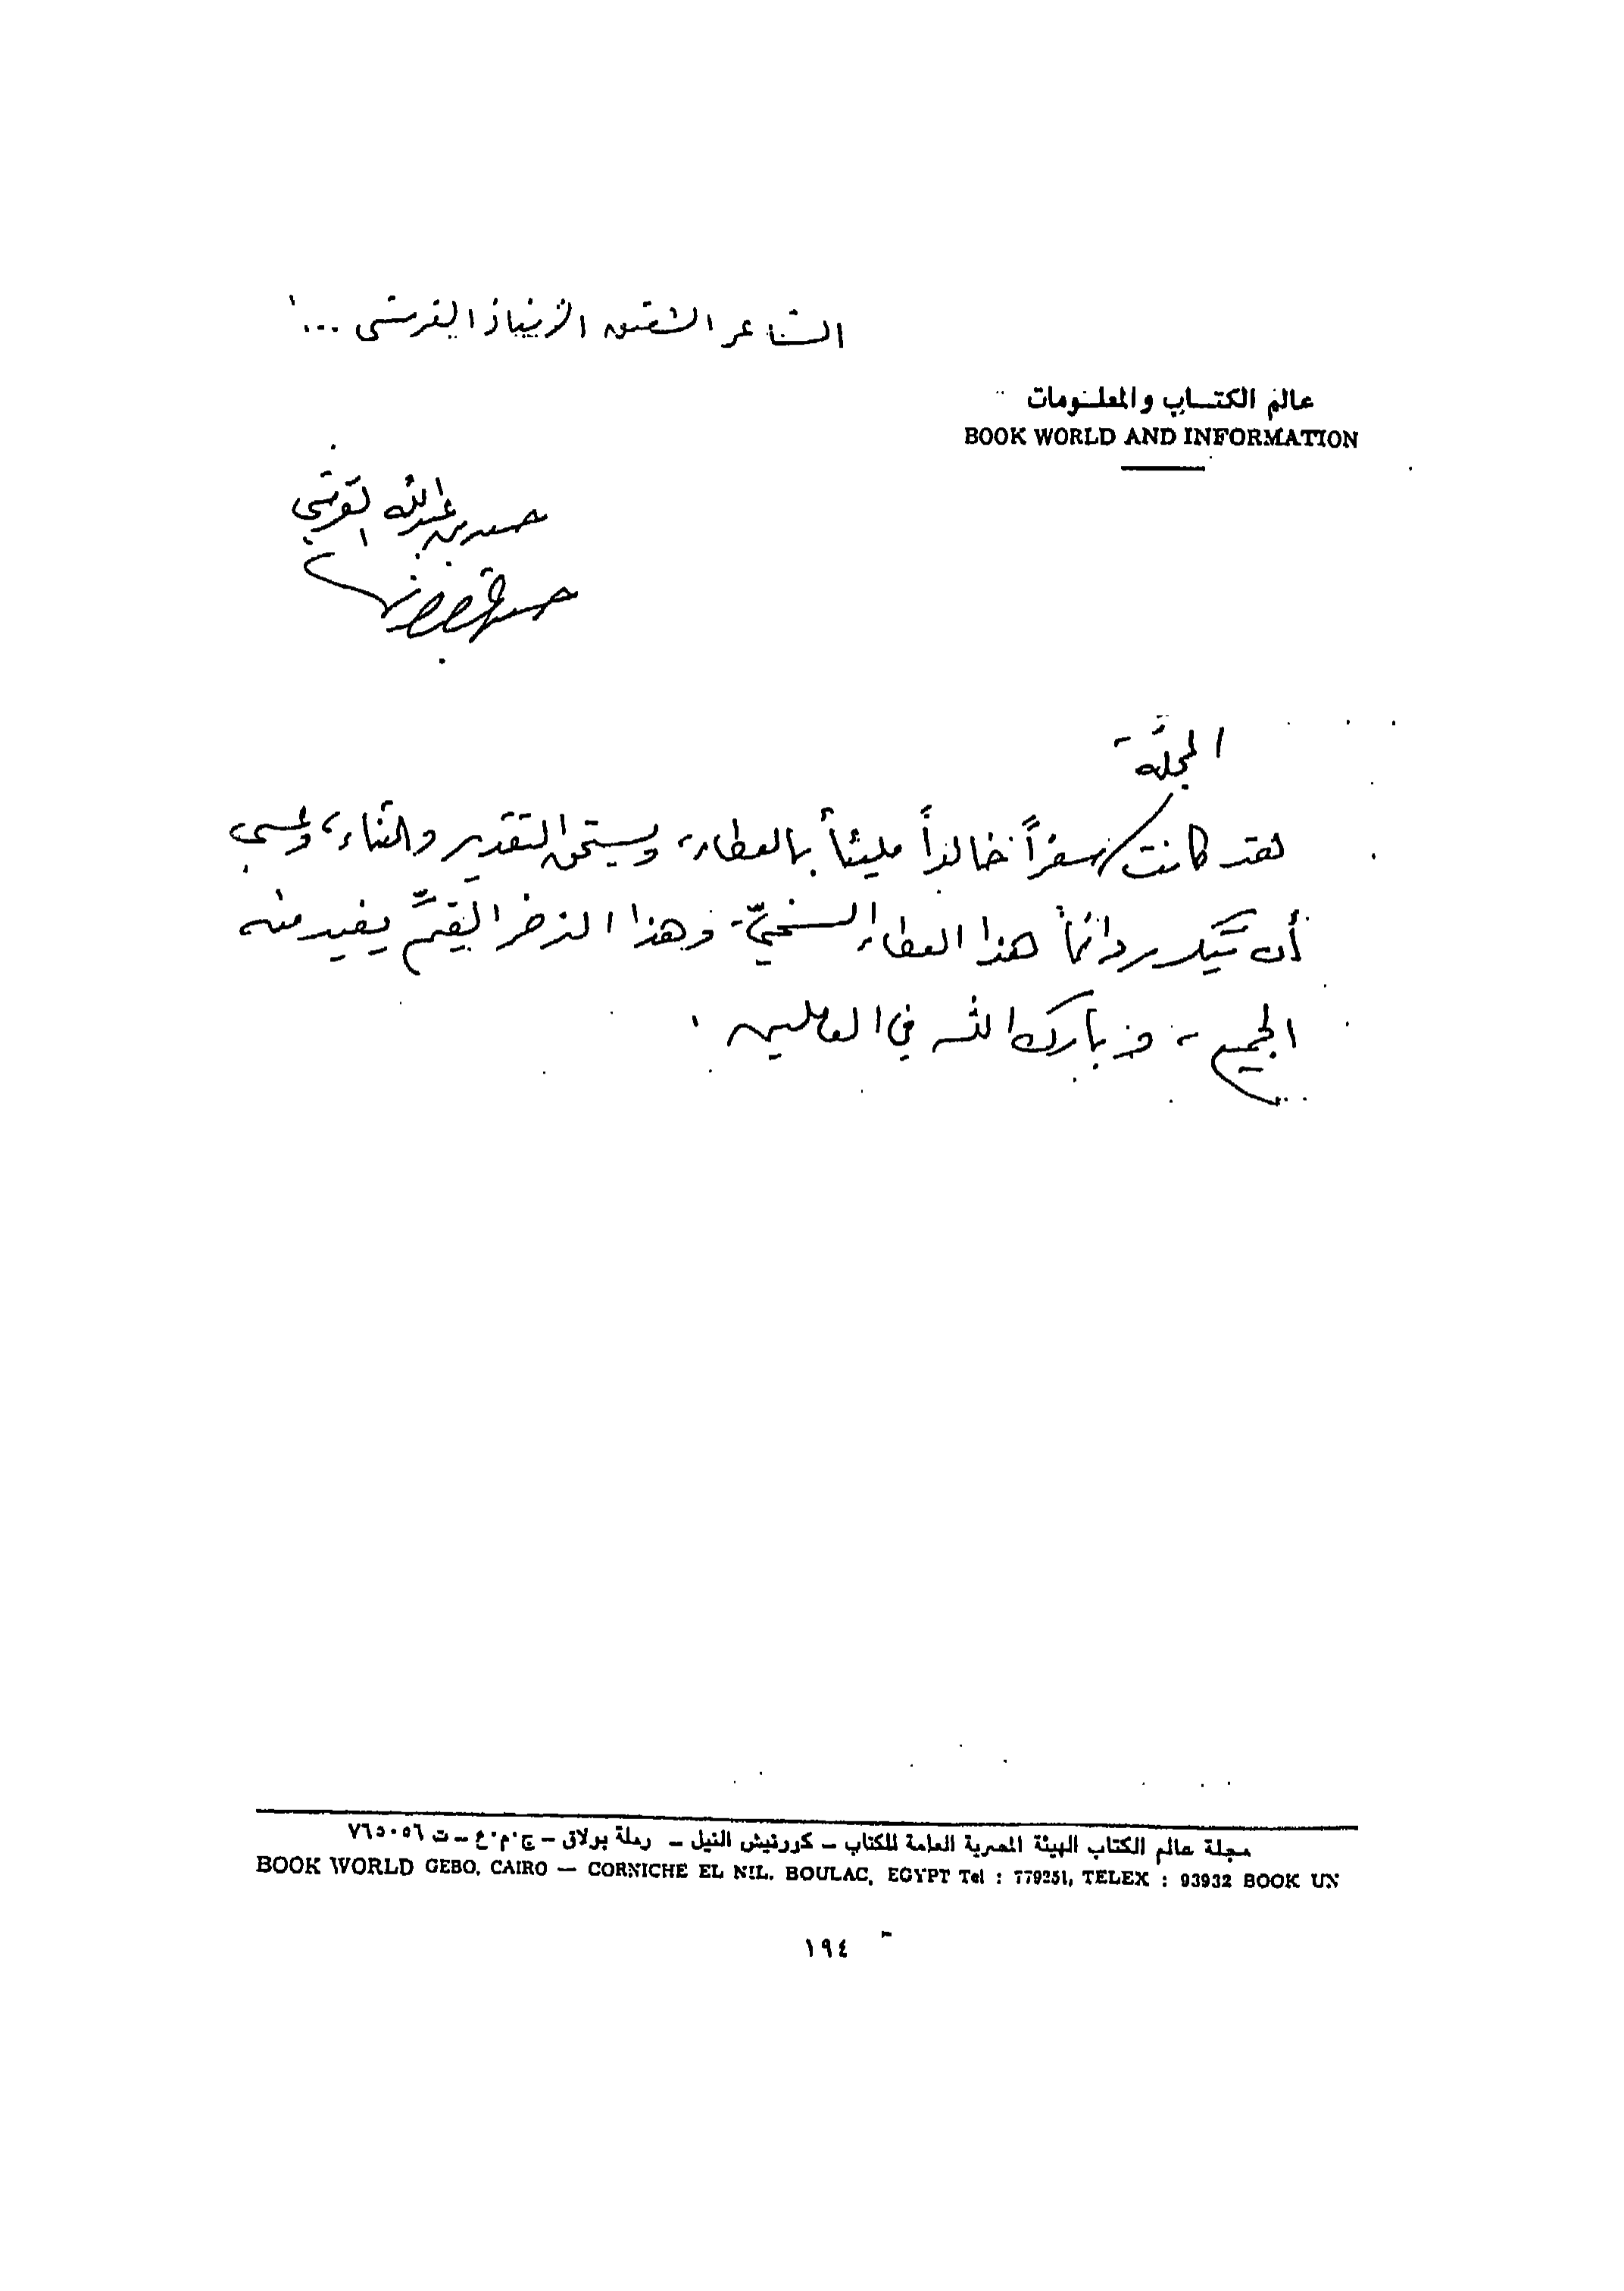 الشاعر الشقيق الأستاذ القرشى ...
عالم الكتاب والمعلومات
BOOK WORLD AND INFORMATION
حسن بن عبدالله القرشي
المجلة
لقد كانت سفراً خالداً مليئاً بالعطاء، ويستحق التقدير والثناء،
أن يتكرر دائماً هذا العطاء السخيّ - وهذا الذخر القيّم يفيد منه
الجميع - وبارك الله في العاملين .
مجلة عالم الكتاب الهيئة المصرية العامة للكتاب - كورنيش النيل - رملة بولاق - ج.م.ع - ت ٧٦٥٠٥٦
BOOK WORLD GEBO, CAIRO — CORNICHE EL NIL, BOULAC, EGYPT Tel : 779251, TELEX : 93932 BOOK UN
١٩٤